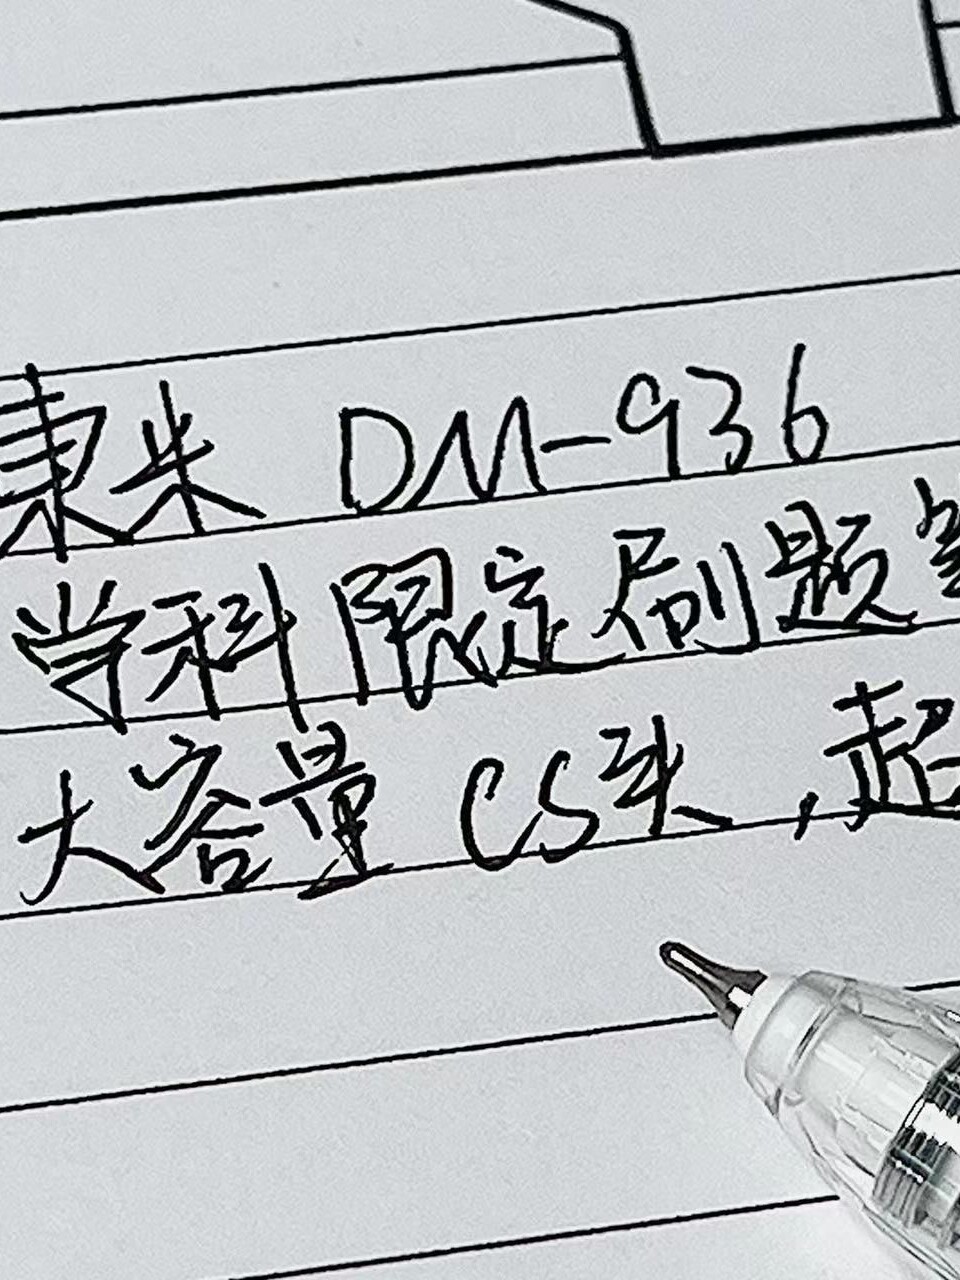 东米 DM-936
学科限定刷题笔
大容量 CS头，超